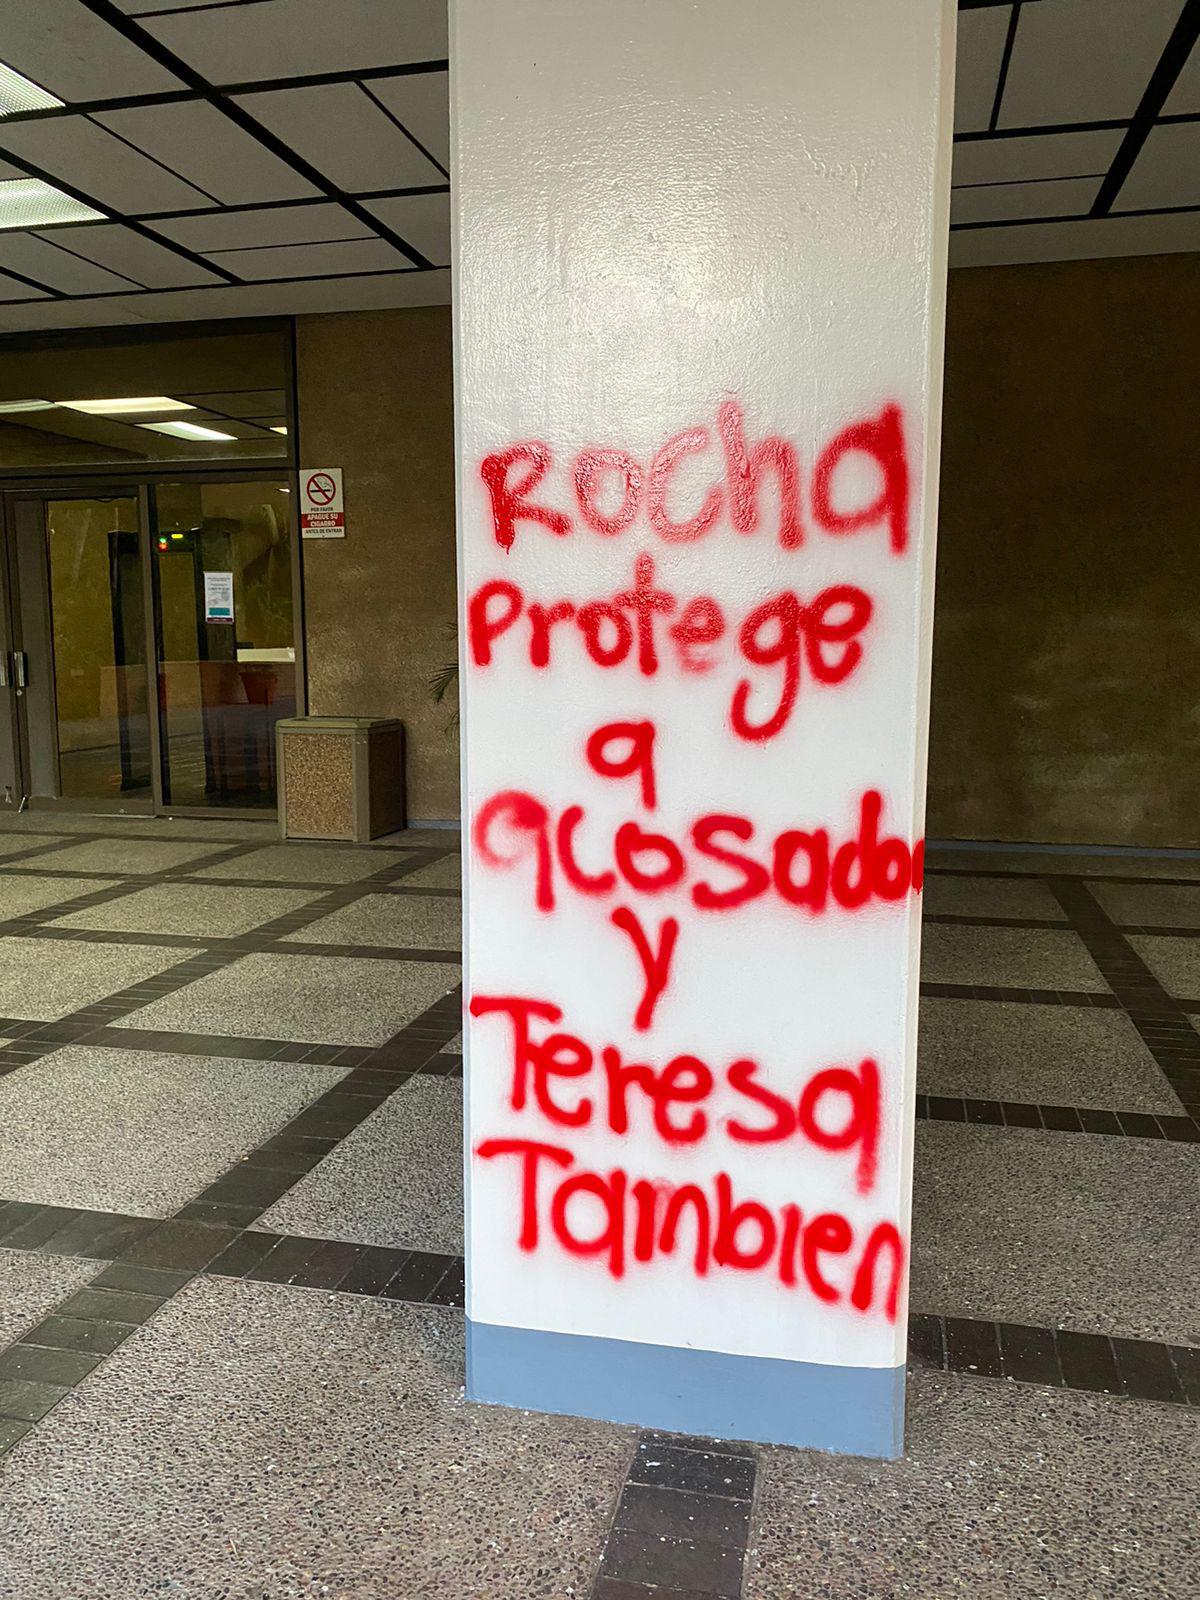 POR FAVOR
APAGUE SU
CIGARRO
ANTES DE ENTRAR
Rocha
Protege
a
acosador
y
Teresa
Tambien